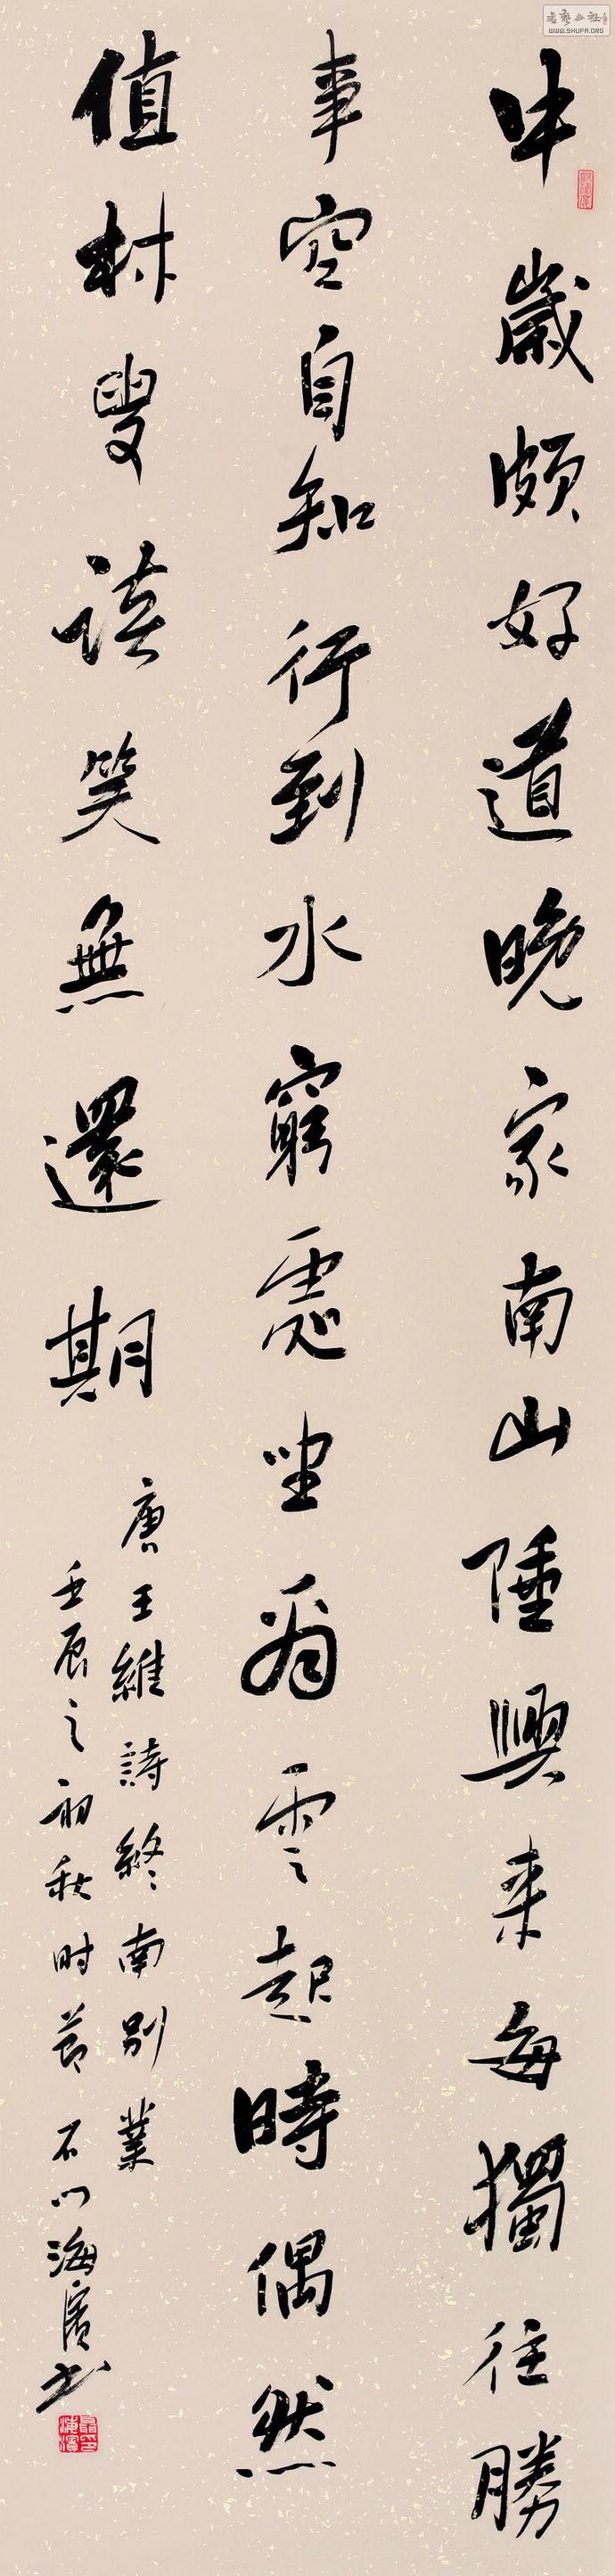 中歲頗好道晚家南山陲興来每獨往勝
事空自知行到水窮處坐看雲起時偶然
值林叟談笑無還期
唐王維詩終南別業
壬辰之初秋时節石门海濱书
WWW.SHUFA.ORG